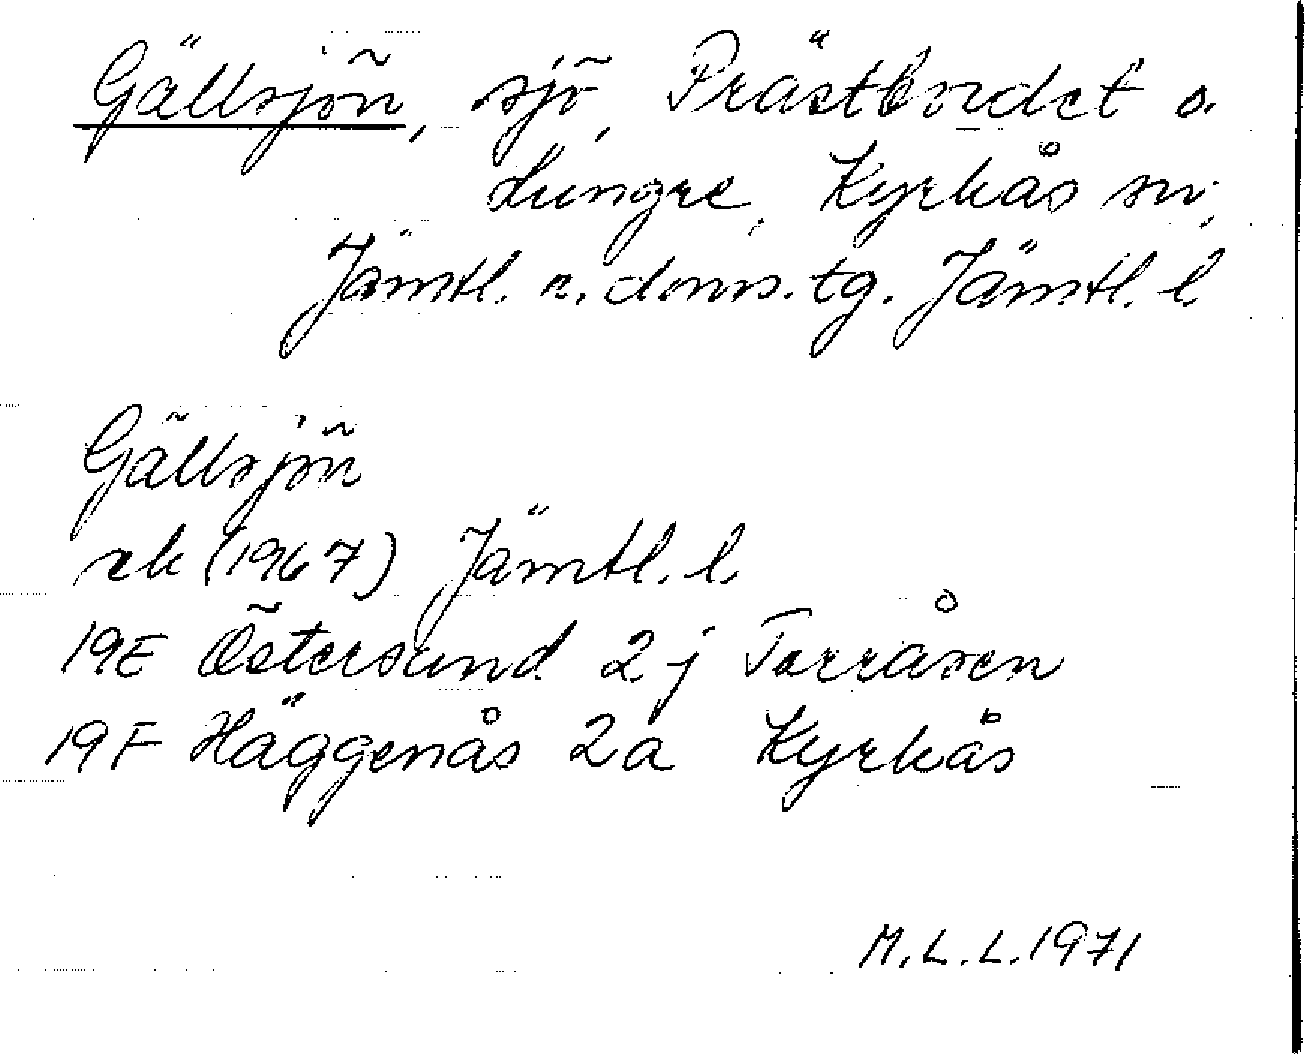 Gällsjön, sjö, Prästbordet o.
Lungre, Kyrkås sn,
Jämtl. n. doms. tg. Jämtl. l
Gällsjön
ek (1967) Jämtl. l.
19E Östersund 2j Torråsen
19F Häggenås 2a Kyrkås
M.L.L. 1971